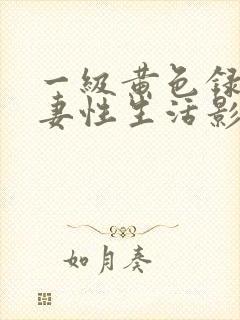 一級黄色録
妻性生活影
如月奏